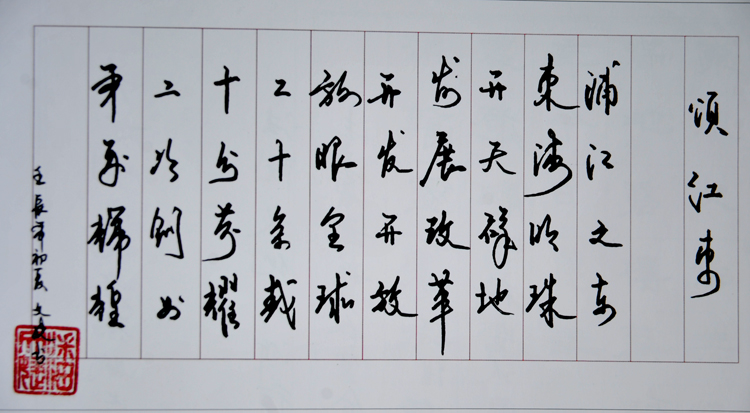 頌江東
浦江之东
東海明珠
开天辟地
發展改革
开发开放
放眼全球
二十余载
十分荣耀
二次创业
壬辰年初夏 文 书